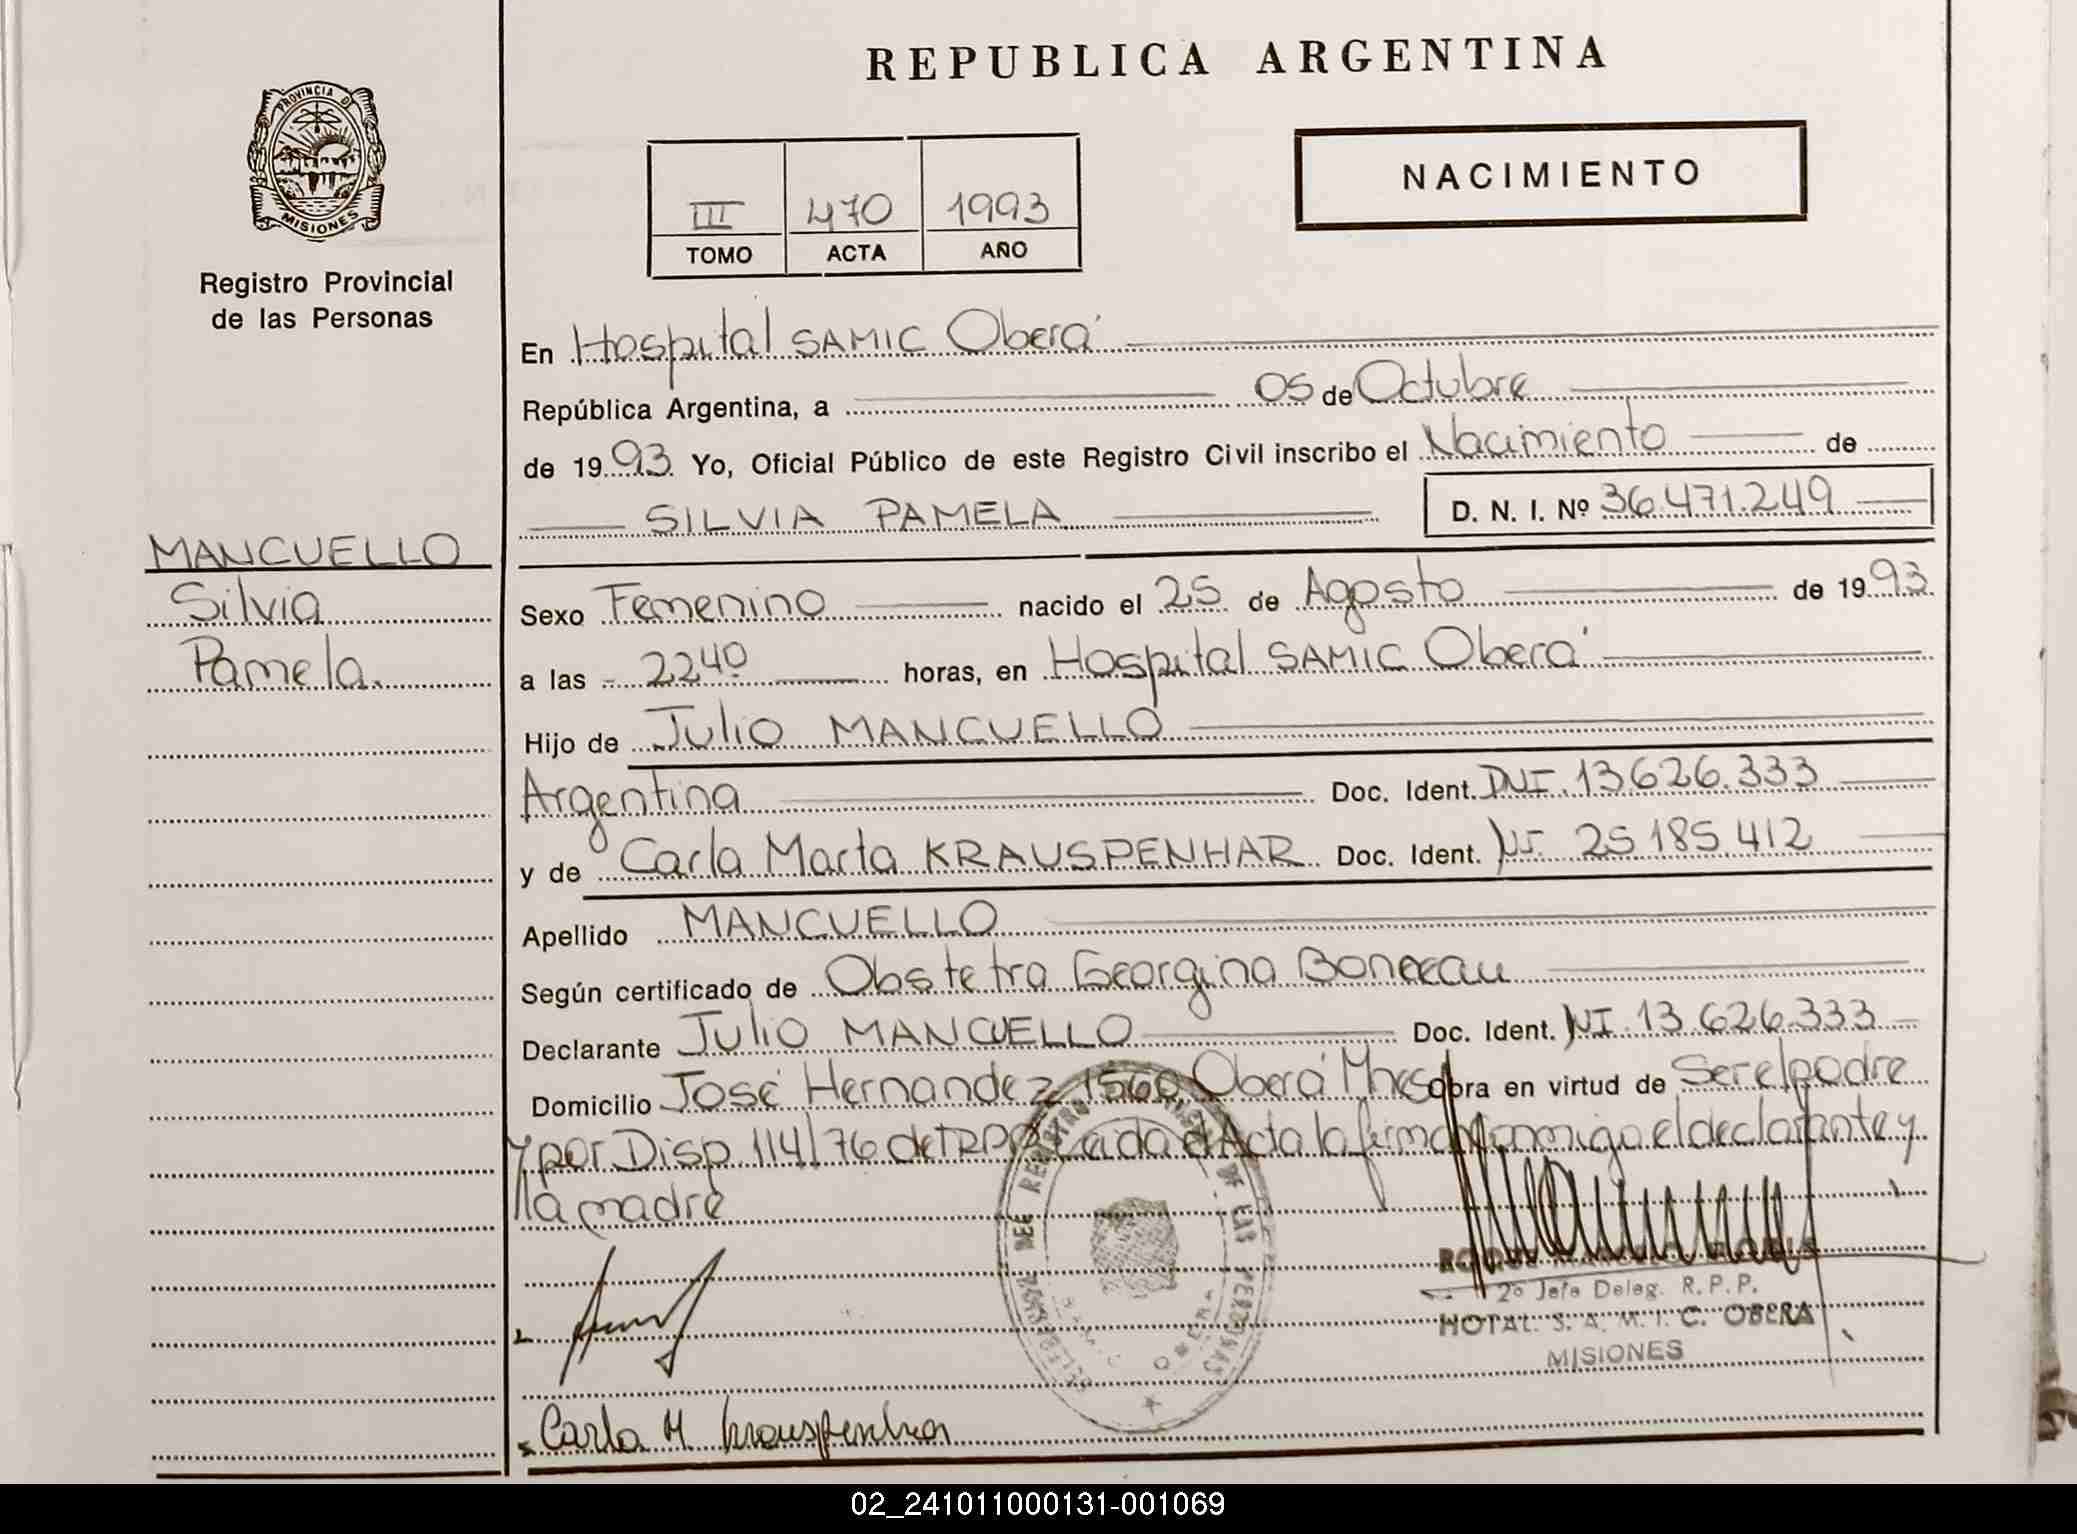 REPUBLICA ARGENTINA
PROVINCIA DE
MISIONES
Registro Provincial
de las Personas
NACIMIENTO
III 470 1993
TOMO ACTA AÑO
En Hospital SAMIC Oberá
República Argentina, a 05 de Octubre
de 1993 Yo, Oficial Público de este Registro Civil inscribo el Nacimiento de
SILVIA PAMELA D. N. I. Nº 36.471.249
MANCUELLO
Silvia
Pamela.
Sexo Femenino nacido el 25 de Agosto de 1993
a las 22 40 horas, en Hospital SAMIC Oberá
Hijo de Julio MANCUELLO
Argentina Doc. Ident. DNI. 13626.333
y de Carla Marta KRAUSPENHAR Doc. Ident. 25185.412
Apellido MANCUELLO
Según certificado de Obstetra Georgina
Declarante Julio MANCUELLO Doc. Ident. DNI. 13.626.333
Domicilio José Hernandez 1560, Oberá Mnes obra en virtud de Ser el padre
y por Disp. 114/76 Acta la firman conmigo el declarante y
la madre
2º Jefe Deleg. R. P. P.
HOTAL. S. A. M. I. C. OBERA
MISIONES
Carla M Krauspenhar
02_241011000131-001069